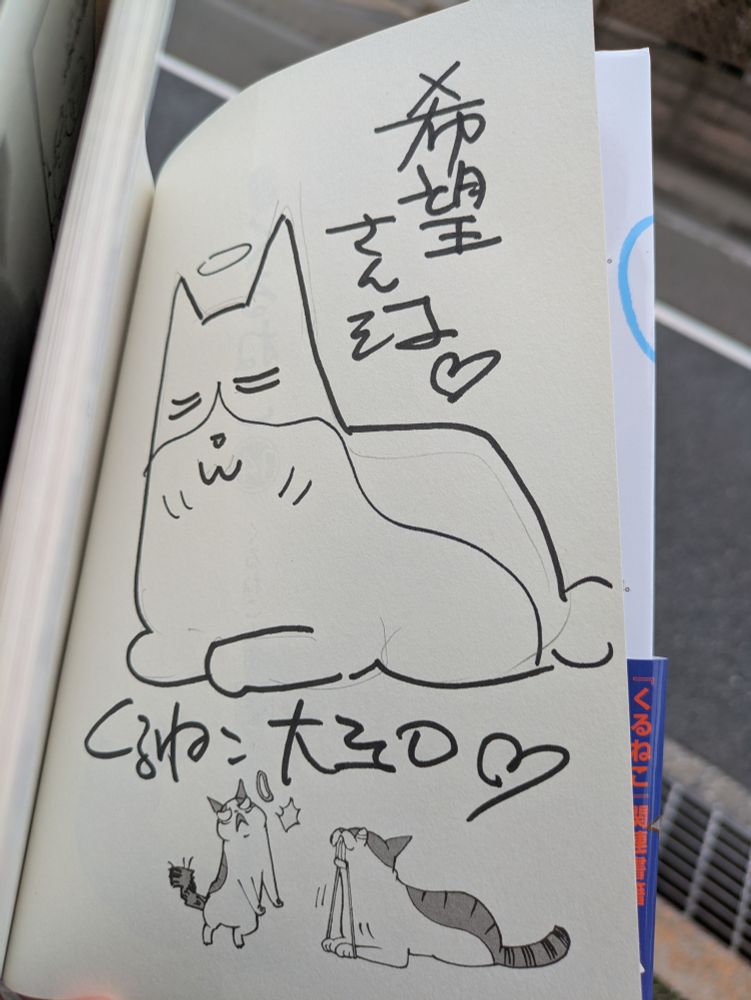 希望
さん江
くるねこ大和
『くるねこ』